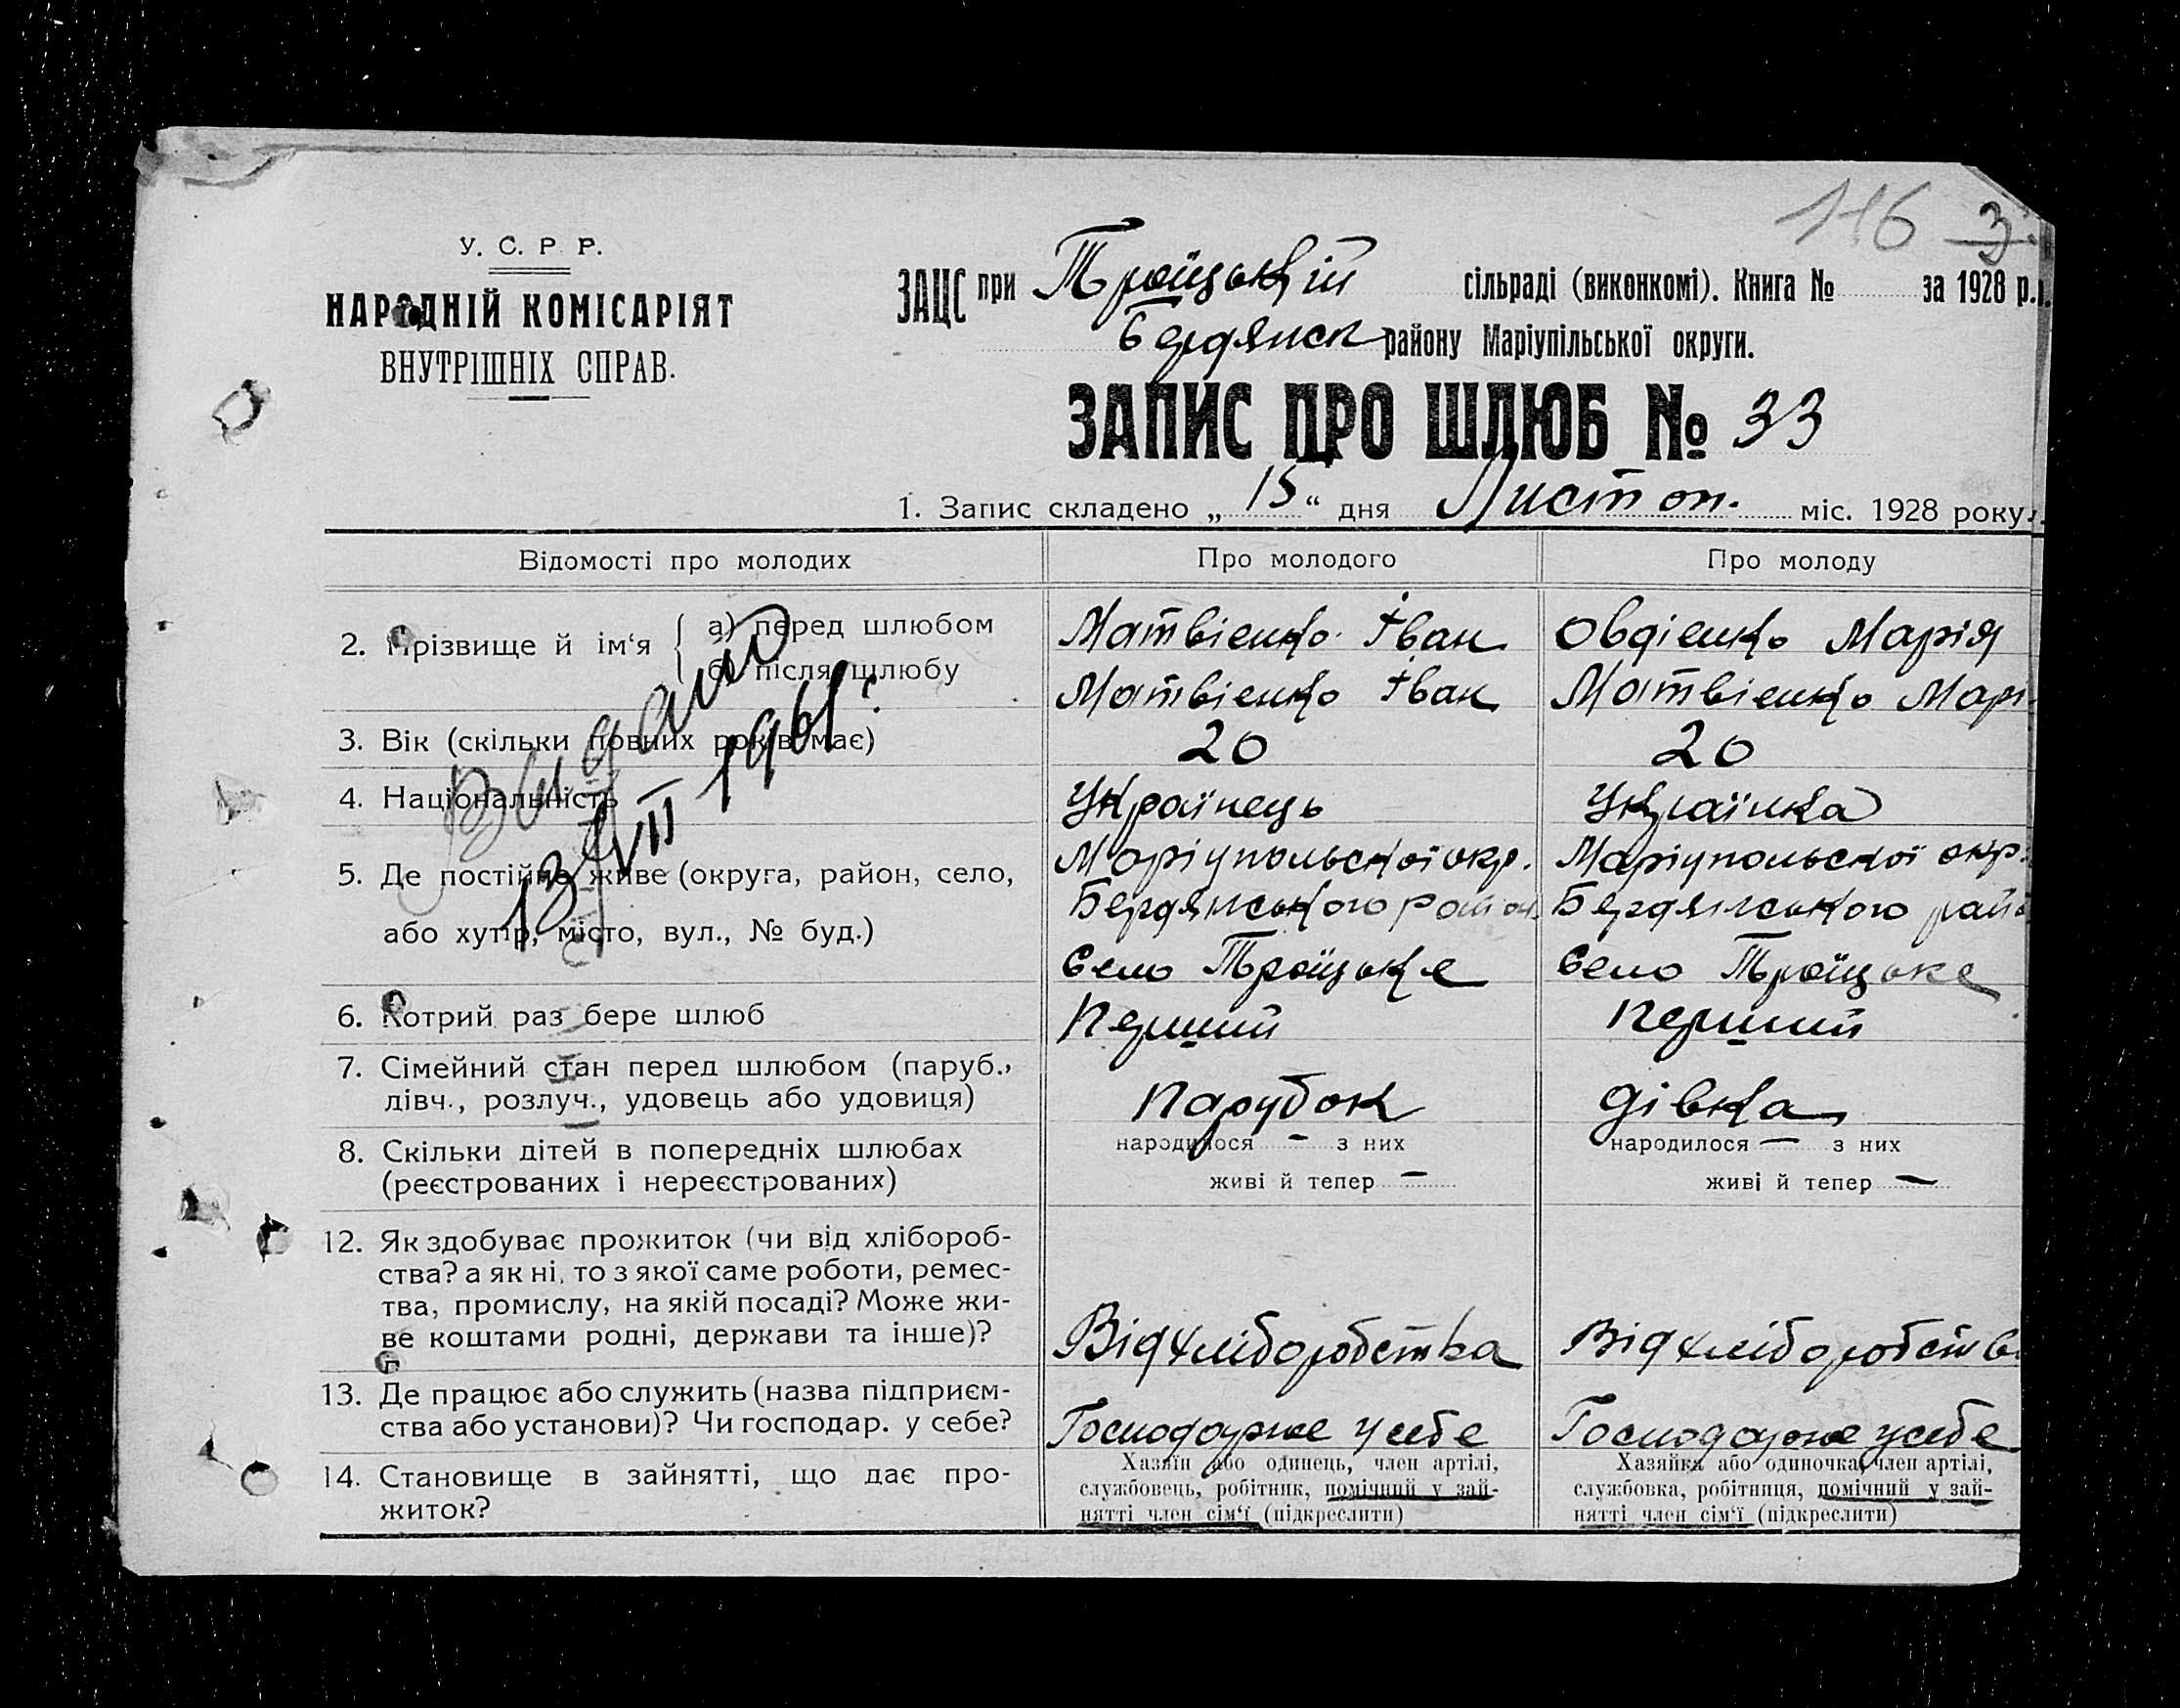 116 3
У. С. Р. Р.
НАРОДНІЙ КОМІСАРІЯТ
ВНУТРІШНІХ СПРАВ.
ЗАЦС при Троїцькій сільраді (виконкомі). Книга № за 1928 р.
Бердянск району Маріупільської округи.
ЗАПИС ПРО ШЛЮБ № 33
1. Запис складено „ 15 “ дня Листоп. міс. 1928 року
Відомості про молодих Про молодого Про молоду
2. Прізвище й ім‘я { а) перед шлюбом Матвієнко Іван Овдієнко Марія
б) після шлюбу Матвієнко Іван Матвієнко Марі
3. Вік (скільки повних років має) 20 20
4. Національність Українець Українка
5. Де постійно живе (округа, район, село, Маріупольської окр. Маріупольської окр.
або хутір, місто, вул., № буд.) Бердянського район Бердянського рай
Село Троїцьке Село Троїцьке
Видано
13/VII 1961 г.
6. Котрий раз бере шлюб Перший Перший
7. Сімейний стан перед шлюбом (паруб.,
дівч., розлуч., удовець або удовиця) Парубок дівка
8. Скільки дітей в попередніх шлюбах народилося — з них народилося — з них
(реєстрованих і нереєстрованих) живі й тепер — живі й тепер —
12. Як здобуває прожиток (чи від хлібороб-
ства? а як ні, то з якої саме роботи, ремес-
тва, промислу, на якій посаді? Може жи-
ве коштами родні, держави та інше)? Від хліборобства Від хліборобств
13. Де працює або служить (назва підприєм-
ства або установи)? Чи господар. у себе? Господарює у себе Господарює у себе
14. Становище в зайнятті, що дає про- Хазяїн або одинець, член артілі, Хазяйка або одиночка, член артілі,
житок? службовець, робітник, помічний у зай- службовка, робітниця, помічний у зай-
нятті член сім‘ї (підкреслити) нятті член сім‘ї (підкреслити)